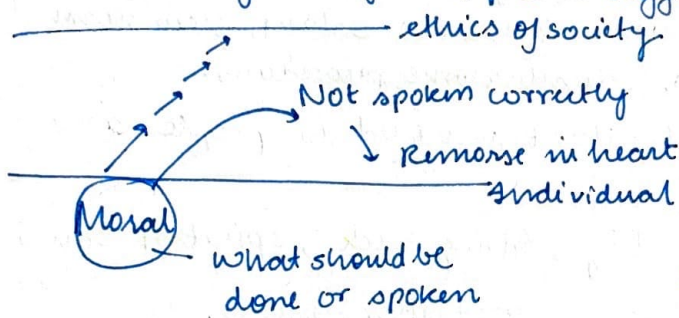 ethics of society.
Not spoken correctly
Remorse in heart
Individual
Moral
What should be
done or spoken